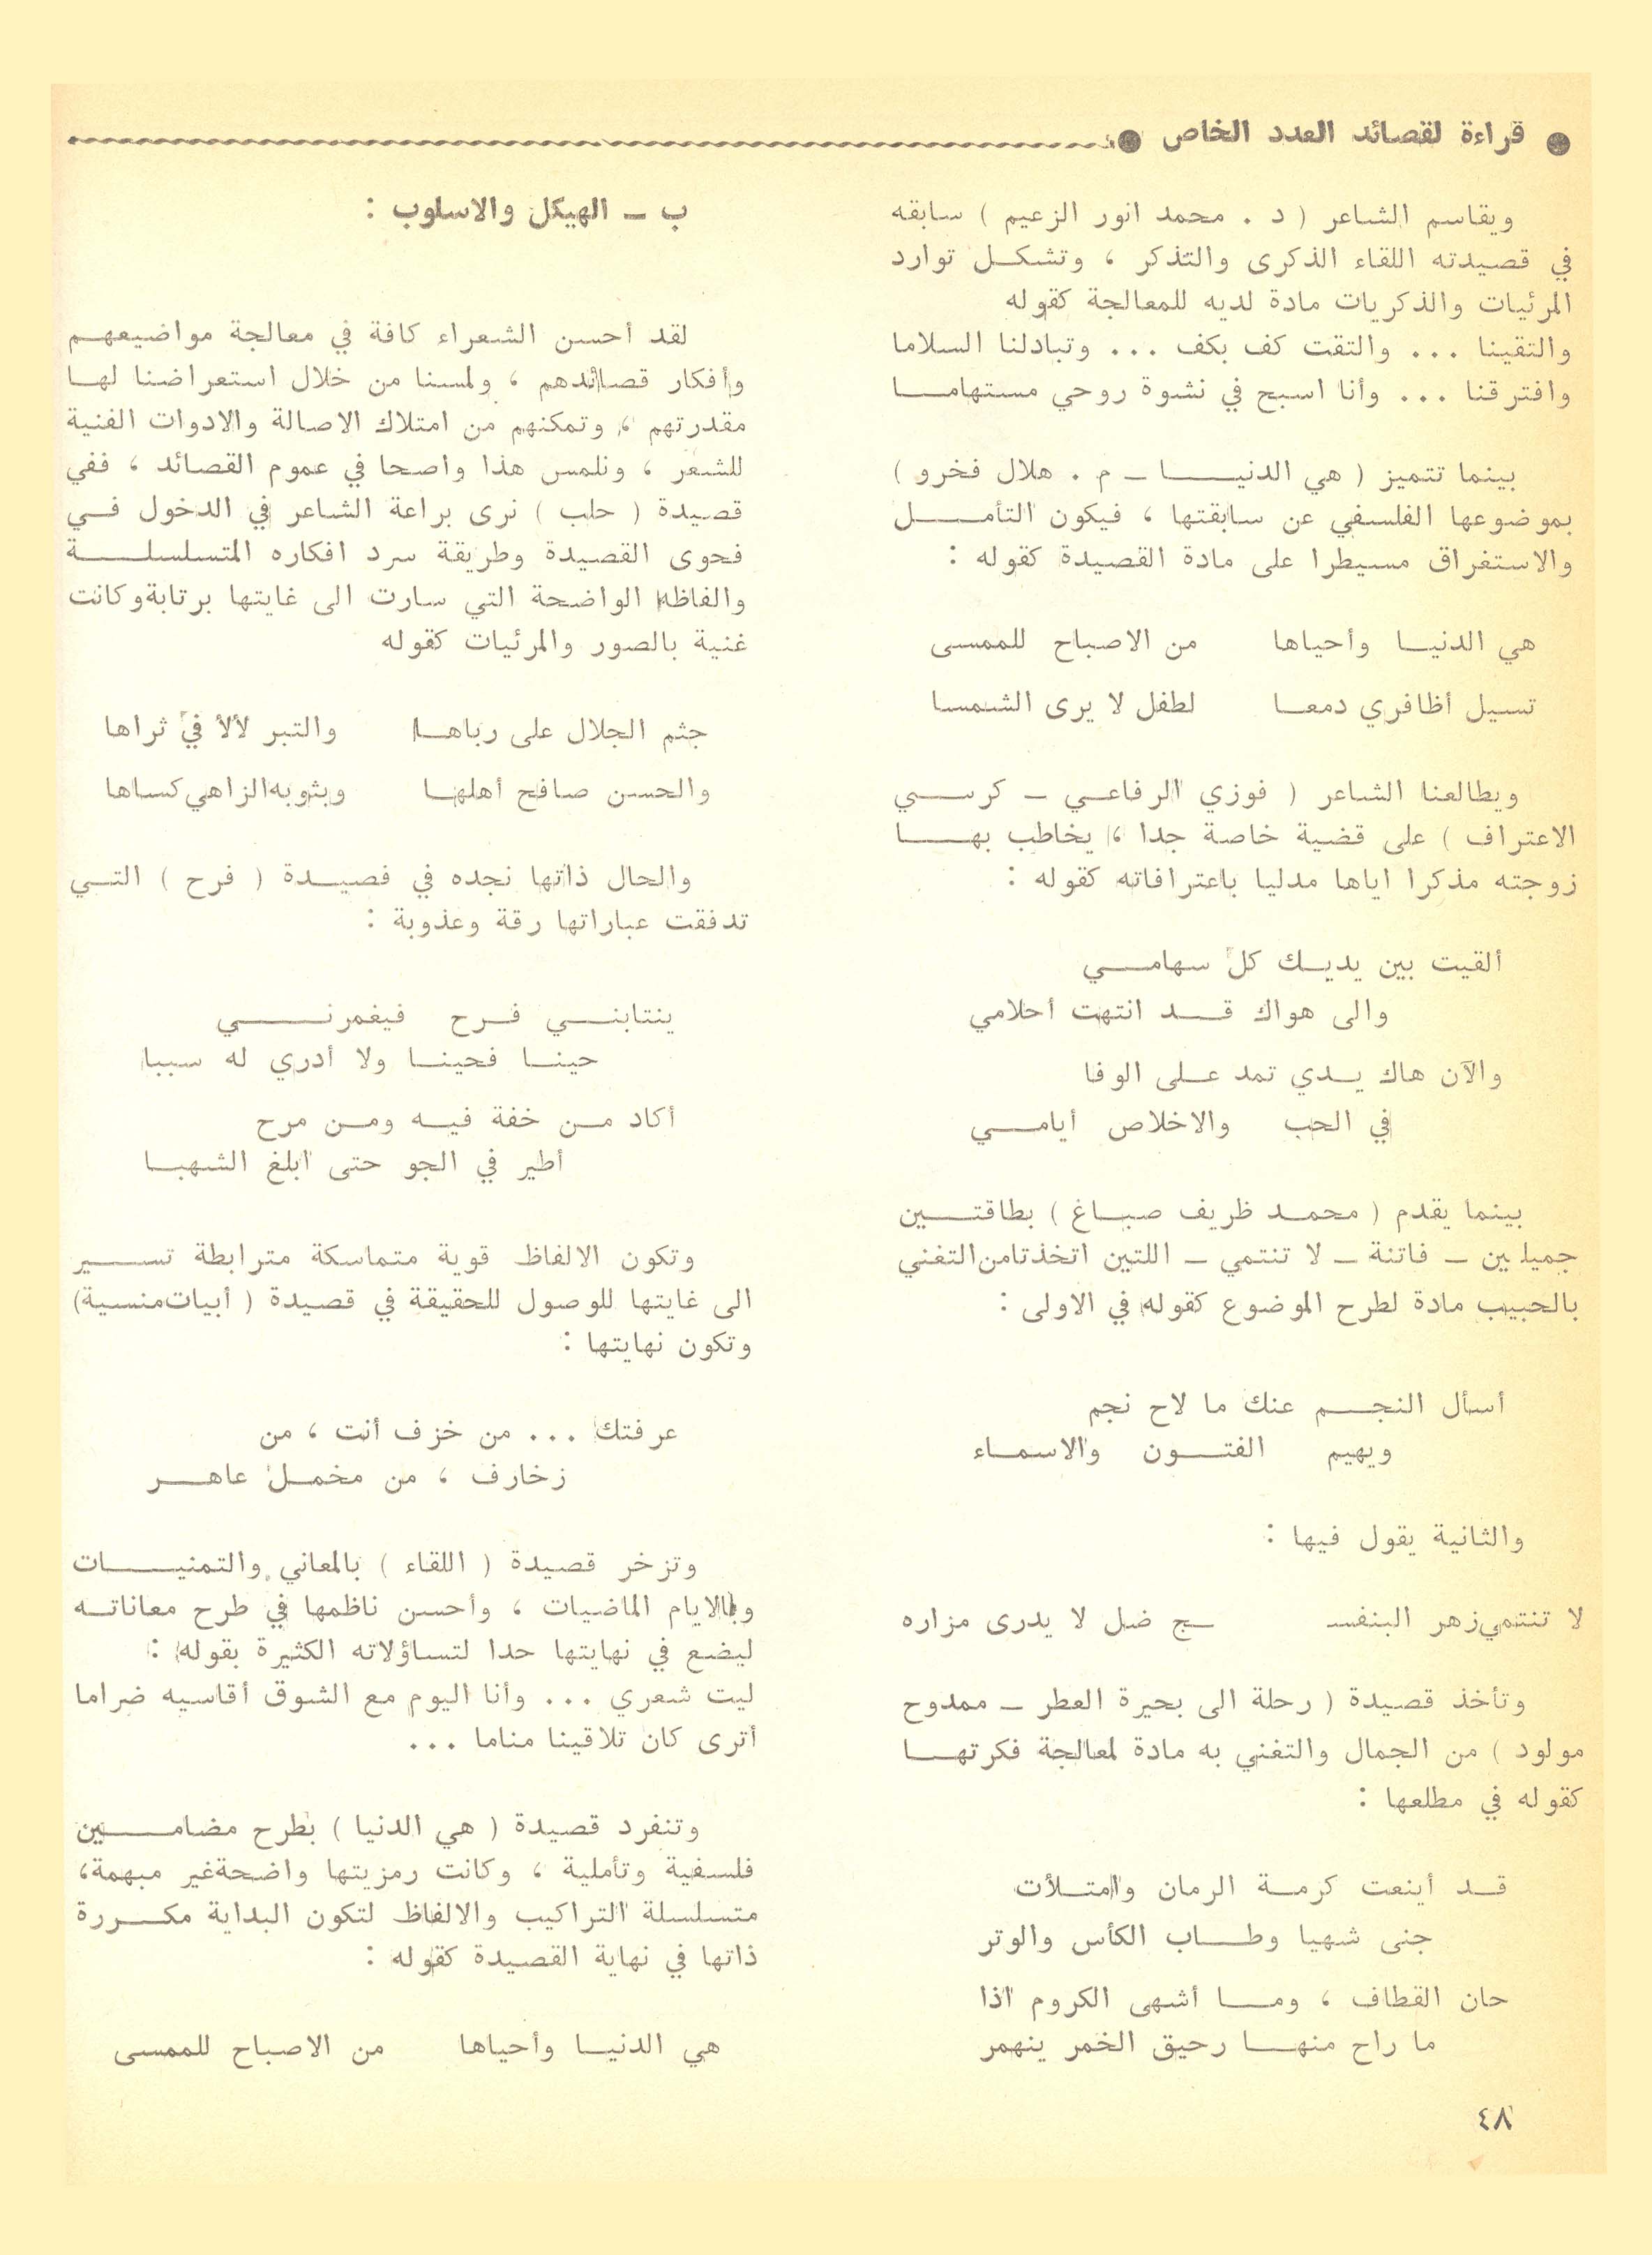 ● قراءة لقصائد العدد الخاص ●
ويقاسم الشاعر ( د . محمد انور الزعيم ) سابقه
في قصيدته اللقاء الذكرى والتذكر ، وتشكل توارد
المرئيات والذكريات مادة لديه للمعالجة كقوله
والتقينا ... والتقت كف بكف ... وتبادلنا السلاما
وافترقنا ... وأنا اسبح في نشوة روحي مستهاما
بينما تتميز ( هي الدنيا - م . هلال فخرو )
بموضوعها الفلسفي عن سابقتها ، فيكون التأمل
والاستغراق مسيطرا على مادة القصيدة كقوله :
هي الدنيا وأحياها من الاصباح للممسى
تسيل أظافري دمعا لطفل لا يرى الشمسا
ويطالعنا الشاعر ( فوزي الرفاعي - كرسي
الاعتراف ) على قضية خاصة جدا ، يخاطب بها
زوجته مذكرا اياها مدليا باعترافاته كقوله :
ألقيت بين يديك كل سهامي
والى هواك قد انتهت أحلامي
والآن هاك يدي تمد على الوفا
في الحب والاخلاص أيامي
بينما يقدم ( محمد ظريف صباغ ) بطاقتين
جميلين - فاتنة - لا تنتمي - اللتين اتخذتا من التغني
بالحبيب مادة لطرح الموضوع كقوله في الاولى :
أسأل النجم عنك ما لاح نجم
ويهيم الفتون والاسماء
والثانية يقول فيها :
لا تنتمي زهر البنفسـ ـج ضل لا يدرى مزاره
وتأخذ قصيدة ( رحلة الى بحيرة العطر - ممدوح
مولود ) من الجمال والتغني به مادة لمعالجة فكرتها
كقوله في مطلعها :
قد أينعت كرمة الرمان وامتلأت
جنى شهيا وطاب الكأس والوتر
حان القطاف ، وما أشهى الكروم اذا
ما راح منها رحيق الخمر ينهمر
ب - الهيكل والاسلوب :
لقد أحسن الشعراء كافة في معالجة مواضيعهم
وأفكار قصائدهم ، ولمسنا من خلال استعراضنا لها
مقدرتهم ، وتمكنهم من امتلاك الاصالة والادوات الفنية
للشعر ، ونلمس هذا واضحا في عموم القصائد ، ففي
قصيدة ( حلب ) نرى براعة الشاعر في الدخول في
فحوى القصيدة وطريقة سرد افكاره المتسلسلة
والفاظه الواضحة التي سارت الى غايتها برتابة وكانت
غنية بالصور والمرئيات كقوله
جثم الجلال على رباها والتبر لألأ في ثراها
والحسن صافح أهلها وبثوبه الزاهي كساها
والحال ذاتها نجده في قصيدة ( فرح ) التي
تدفقت عباراتها رقة وعذوبة :
ينتابني فرح فيغمرني
حينا فحينا ولا أدري له سببا
أكاد من خفة فيه ومن مرح
أطير في الجو حتى ابلغ الشهبا
وتكون الالفاظ قوية متماسكة مترابطة تسير
الى غايتها للوصول للحقيقة في قصيدة ( أبيات منسية)
وتكون نهايتها :
عرفتك ... من خزف أنت ، من
زخارف ، من مخمل عاهر
وتزخر قصيدة ( اللقاء ) بالمعاني والتمنيات
وبالايام الماضيات ، وأحسن ناظمها في طرح معاناته
ليضع في نهايتها حدا لتساؤلاته الكثيرة بقوله :
ليت شعري ... وأنا اليوم مع الشوق أقاسيه ضراما
أترى كان تلاقينا مناما ...
وتنفرد قصيدة ( هي الدنيا ) بطرح مضامين
فلسفية وتأملية ، وكانت رمزيتها واضحة غير مبهمة،
متسلسلة التراكيب والالفاظ لتكون البداية مكررة
ذاتها في نهاية القصيدة كقوله :
هي الدنيا وأحياها من الاصباح للممسى
٤٨